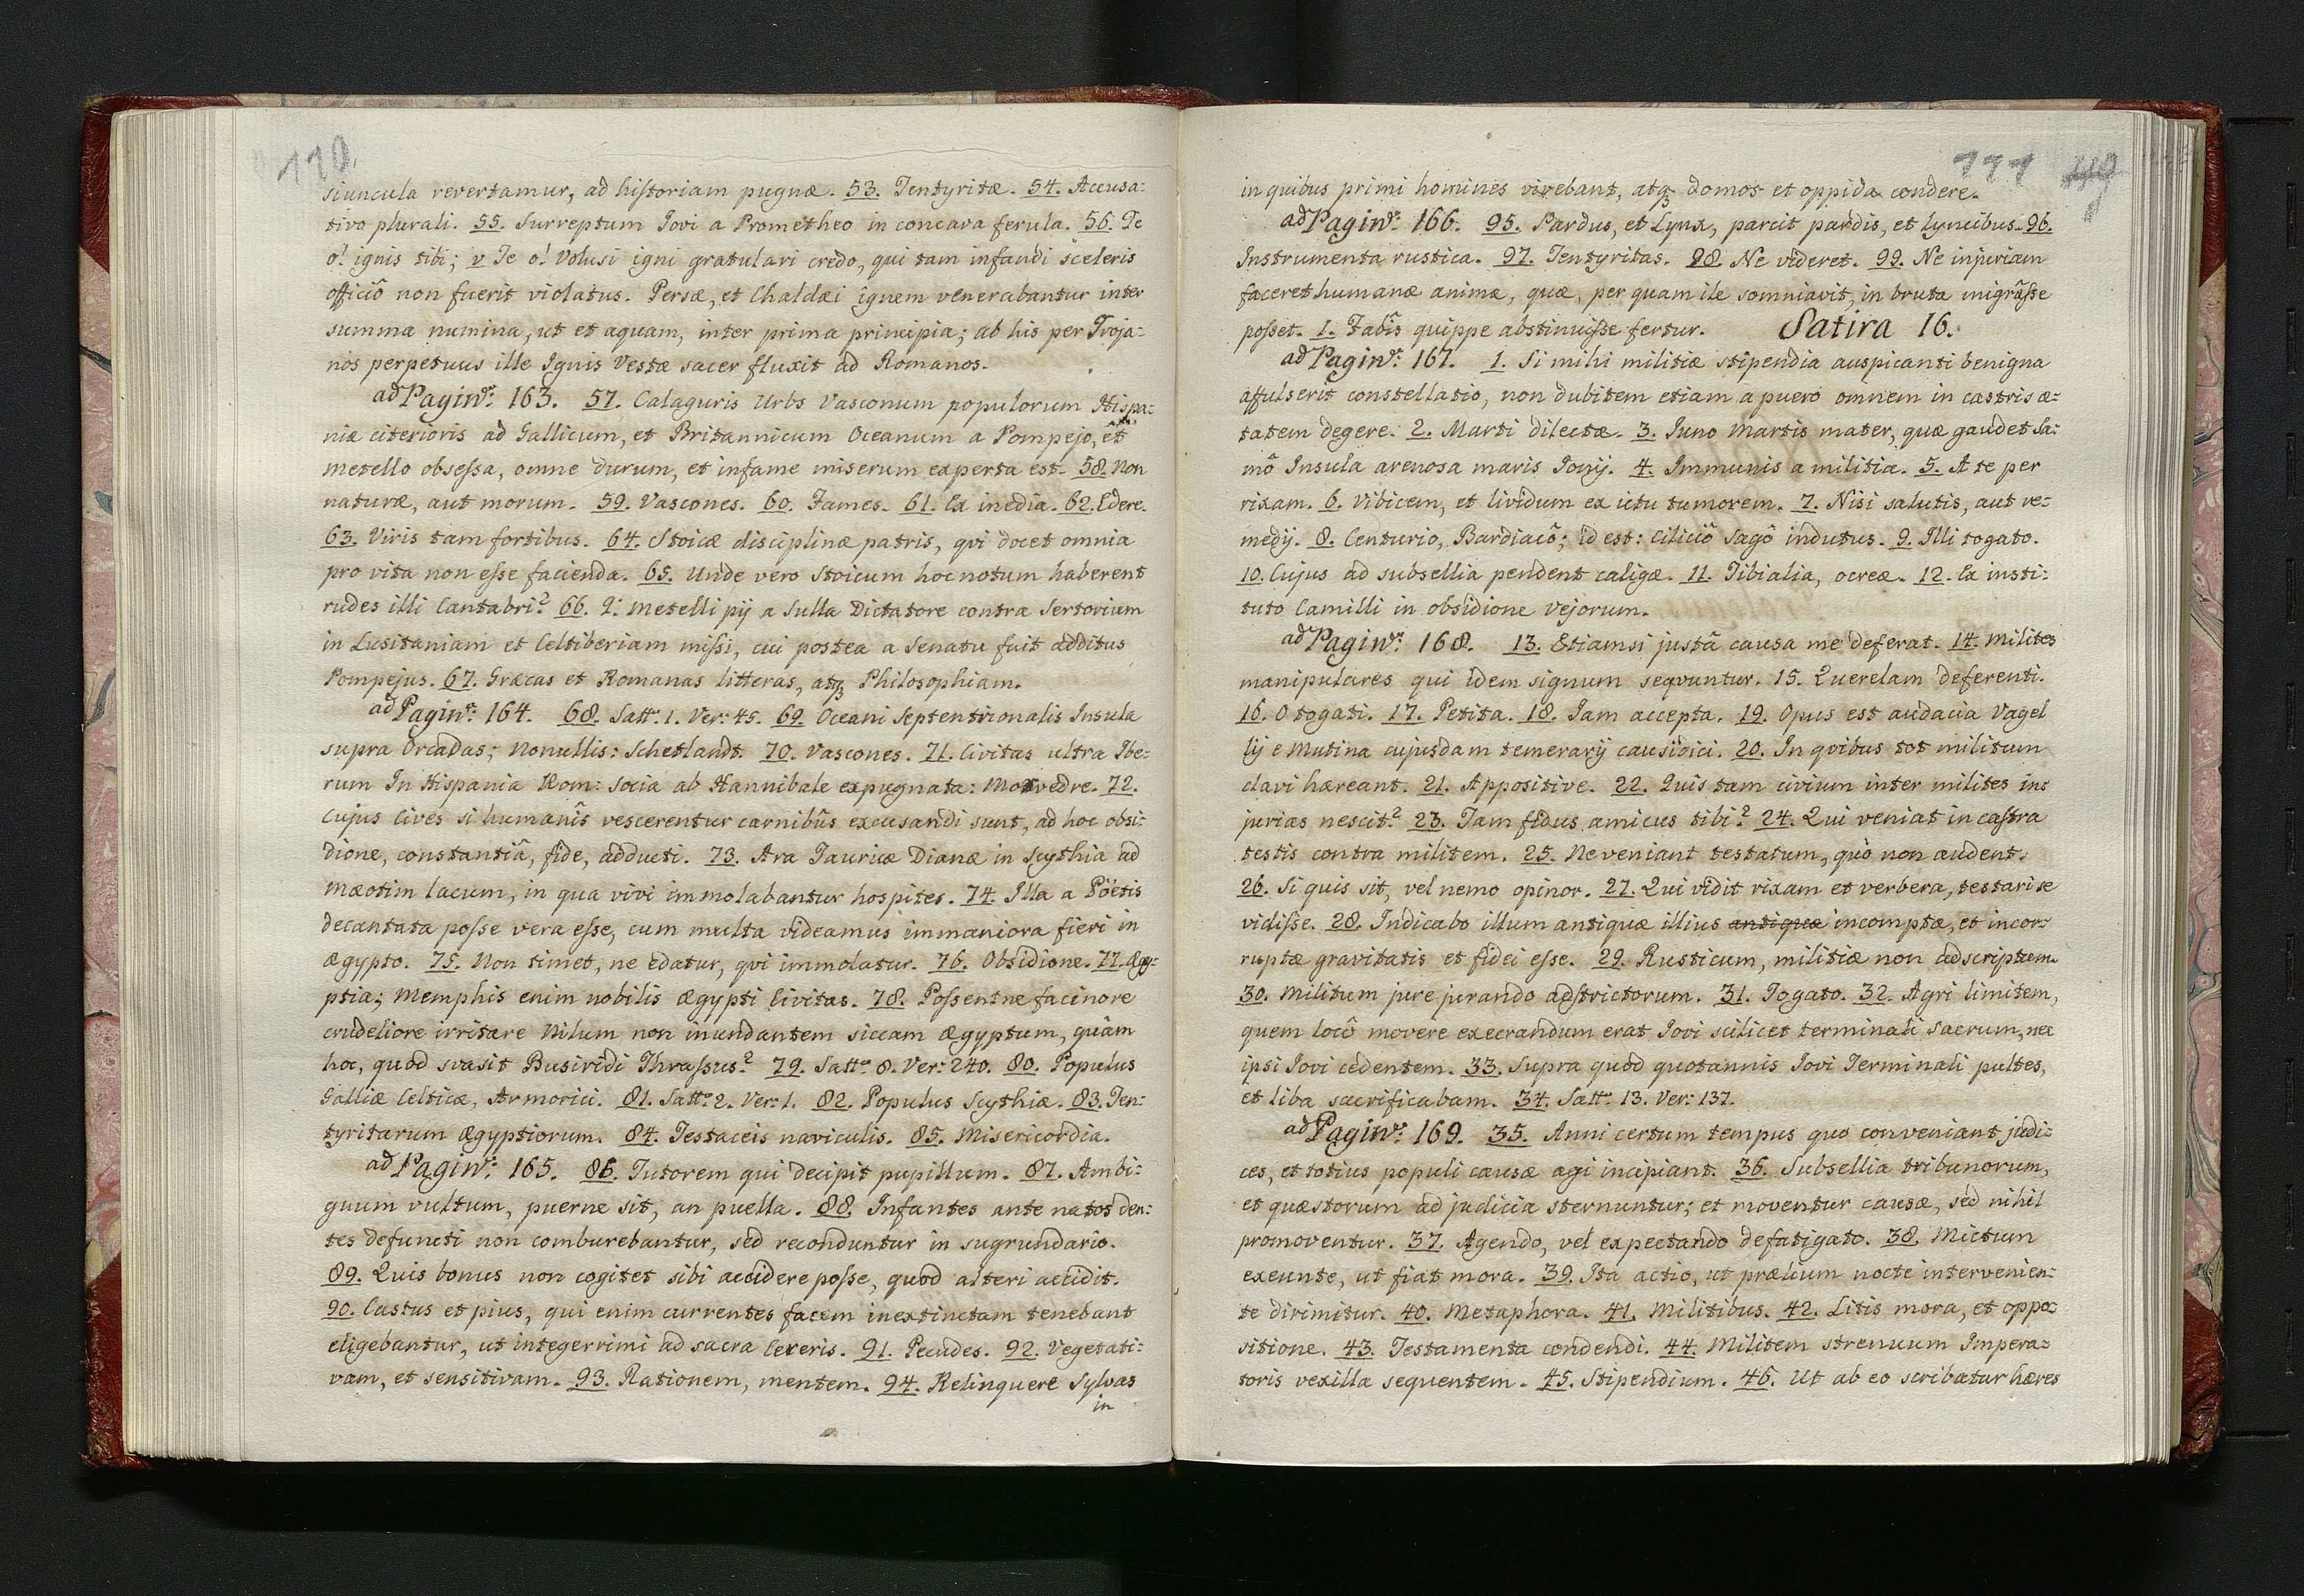 110
siuncula revertamur, ad historiam pugnæ. 53. Tentyritæ. 54. Accusa:
tivo plurali. 55. Surreptum Jovi a Prometheo in concava ferula. 56. Te
o! ignis tibi; v Te o! Volusi igni gratulari credo, qui tam infandi sceleris
officiô non fuerit violatus. Persæ, et Chaldæi ignem venerabantur inter
summa numina, ut et aquam, inter prima principia; ab his per Troja:
nos perpetuus ille Ignis Vestæ sacer fluxit ad Romanos.
ad Pagin: 163. 57. Calaguris Urbs Vasconum populorum Hispa:
niæ citerioris ad Gallicum, et Britannicum Oceanum a Pompejo, et
Metello obsessa, omne durum, et infame miserum experta est. 58. Non
naturæ, aut morum. 59. Vascones. 60. Fames. 61. Ex inedia. 62. Edere.
63. Viris tam fortibus. 64. Stoicæ disciplinæ patris, qvi docet omnia
pro vita non esse facienda. 65. Unde vero Stoicum hoc notum haberent
rudes illi Cantabri? 66. Q: Metelli pij a Sulla Dictatore contra Sertorium
in Lusitaniam et Celtiberiam missi, cui postea a Senatu fuit additus
Pompejus. 67. Græcas et Romanas litteras, atq3 Philosophiam.
ad Pagin: 164. 68. Satt: 1. Ver: 45. 69. Oceani Septentrionalis Insula
supra Orcadas; Nonullis: Schetlandt. 70. Vascones. 71. Civitas ultra Ibe:
rum In Hispania Rom: Socia ab Hannibale expugnata: Morvedre. 72.
Cujus Cives si humanîs vescerentur carnibûs excusandi sunt, ad hoc obsi:
dione, constantiâ, fide, adducti. 73. Ara Tauricæ Dianæ in Scythia ad
Mæotim lacum, in qua vivi immolabantur hospites. 74. Illa a Pöetis
decantata posse vera esse, cum multa videamus immaniora fieri in
Ægypto. 75. Non timet, ne edatur, qvi immolatur. 76. Obsidione. 77. Ægy:
ptia; Memphis enim nobilis Ægypti Civitas. 78. Possentne facinore
crudeliore irritare Nilum non inundantem siccam Ægyptum, quàm
hoc, quod svasit Busiridi Thrassus? 79. Satt: 8. Ver: 240. 80. Populus
Galliæ Celticæ, Armorici. 81. Satt: 2. Ver: 1. 82. Populus Scythiæ. 83. Ten:
tyritarum Ægyptiorum. 84. Testaceis naviculis. 85. Misericordia.
ad Pagin: 165. 86. Tutorem qui decipit pupillum. 87. Ambi:
guum vultum, puerne sit, an puella. 88. Infantes ante natos den:
tes defuncti non comburebantur, sed reconduntur in sugrundario.
89. Quis bonus non cogitet sibi accidere posse, quod alteri accidit.
90. Castus et pius, qui enim currentes facem inextinctam tenebant
eligebantur, ut integerrimi ad sacra Cereris. 91. Pecudes. 92. Vegetati:
vam, et sensitivam. 93. Rationem, mentem. 94. Relinquere Sylvas
in
111
in quibus primi homines vivebant, atq3 domos et oppida condere.
ad Pagin: 166. 95. Pardus, et Lynx, parcit pardis, et lyncibus. 96.
Instrumenta rustica. 97. Tentyritas. 98. Ne videret. 99. Ne injuriam
faceret humanæ animæ, quæ, per quam ile somniavit, in bruta migrâsse
posset. 1. Fabîs quippe abstinuisse fertur. Satira 16.
ad Pagin: 167. 1. Si mihi militiæ stipendia auspicanti benigna
affulserit constellatio, non dubitem etiam a puero omnem in castris æ:
tatem degere. 2. Marti dilectæ. 3. Juno Martis mater, quæ gaudet Sa:
mô Insula arenosa maris Jonij. 4. Immunis a militia. 5. A te per
rixam. 6. Vibicem, et lividum ex ictu tumorem. 7. Nisi salutis, aut re:
medij. 8. Centurio, Bardiacô; id est: Ciliciô Sagô indutus. 9. Illi togato.
10. Cujus ad subsellia pendent caligæ. 11. Tibialia, ocreæ. 12. Ex insti:
tuto Camilli in obsidione Vejorum.
ad Pagin: 168. 13. Etiamsi justâ causa me deferat. 14. Milites
manipulares qui idem signum seqvuntur. 15. Querelam deferenti.
16. O togati. 17. Petita. 18. Jam accepta. 19. Opus est audacia Vagel
lij e Mutina cujusdam temerarij causidici. 20. In qvibus tot militum
clavi hæreant. 21. Appositive. 22. Quis tam civium inter milites in:
jurias nescit? 23. Tam fidus amicus tibi? 24. Qui veniat in castra
testis contra militem. 25. Ne veniant testatum, quò non audent.
26. Si quis sit, vel nemo opinor. 27. Qui vidit rixam et verbera, testari se
vidisse. 28. Indicabo illum antiquæ illius antiquæ incomptæ, et incor:
ruptæ gravitatis et fidei esse. 29. Rusticum, militiæ non adscriptum.
30. Militum jure jurando adstrictorum. 31. Togato. 32. Agri limitem,
quem locô movere execrandum erat Jovi scilicet terminali sacrum, nec
ipsi Jovi cedentem. 33. Supra quod quotannis Jovi Terminali pultes,
et liba sacrificabam. 34. Satt: 13. Ver: 137.
ad Pagin: 169. 35. Anni certum tempus quo conveniant judi:
ces, et totius populi causæ agi incipiant. 36. Subsellia tribunorum,
et quæstorum ad judicia sternuntur; et moventur causæ, sed nihil
promoventur. 37. Agendo, vel expectando defatigato. 38. Mictum
exeunte, ut fiat mora. 39. Ita actio, ut prælium nocte intervenien:
te dirimitur. 40. Metaphora. 41. Militibus. 42. Litis mora, et oppo:
sitione. 43. Testamenta condendi. 44. Militem strenuum Impera:
toris vexilla sequentem. 45. Stipendium. 46. Ut ab eo scribatur hæres